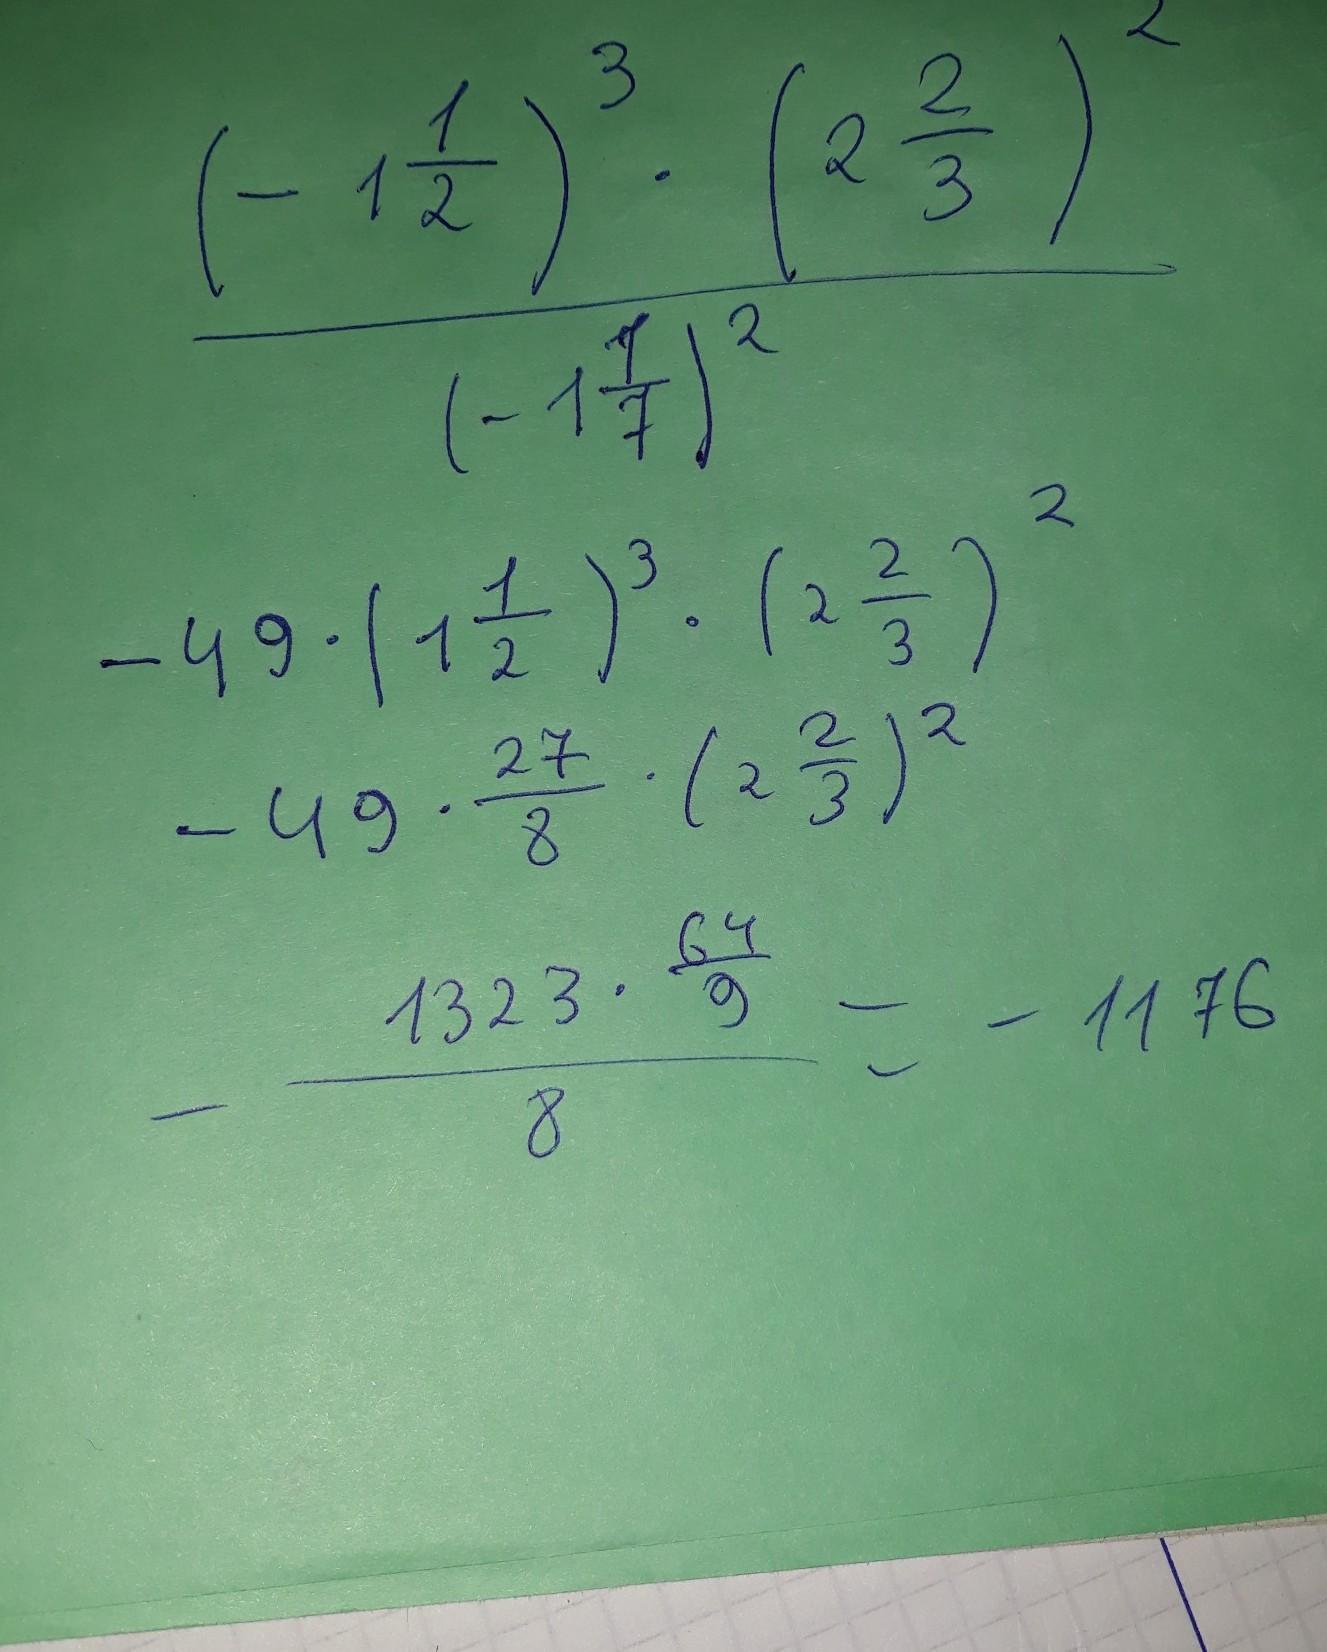 (-1 1/2)^3 · (2 2/3)^2
(-1 1/7)^2
-49·(1 1/2)^3 · (2 2/3)^2
-49 · 27/8 · (2 2/3)^2
- (1323 · 64/9)/8 = -1176